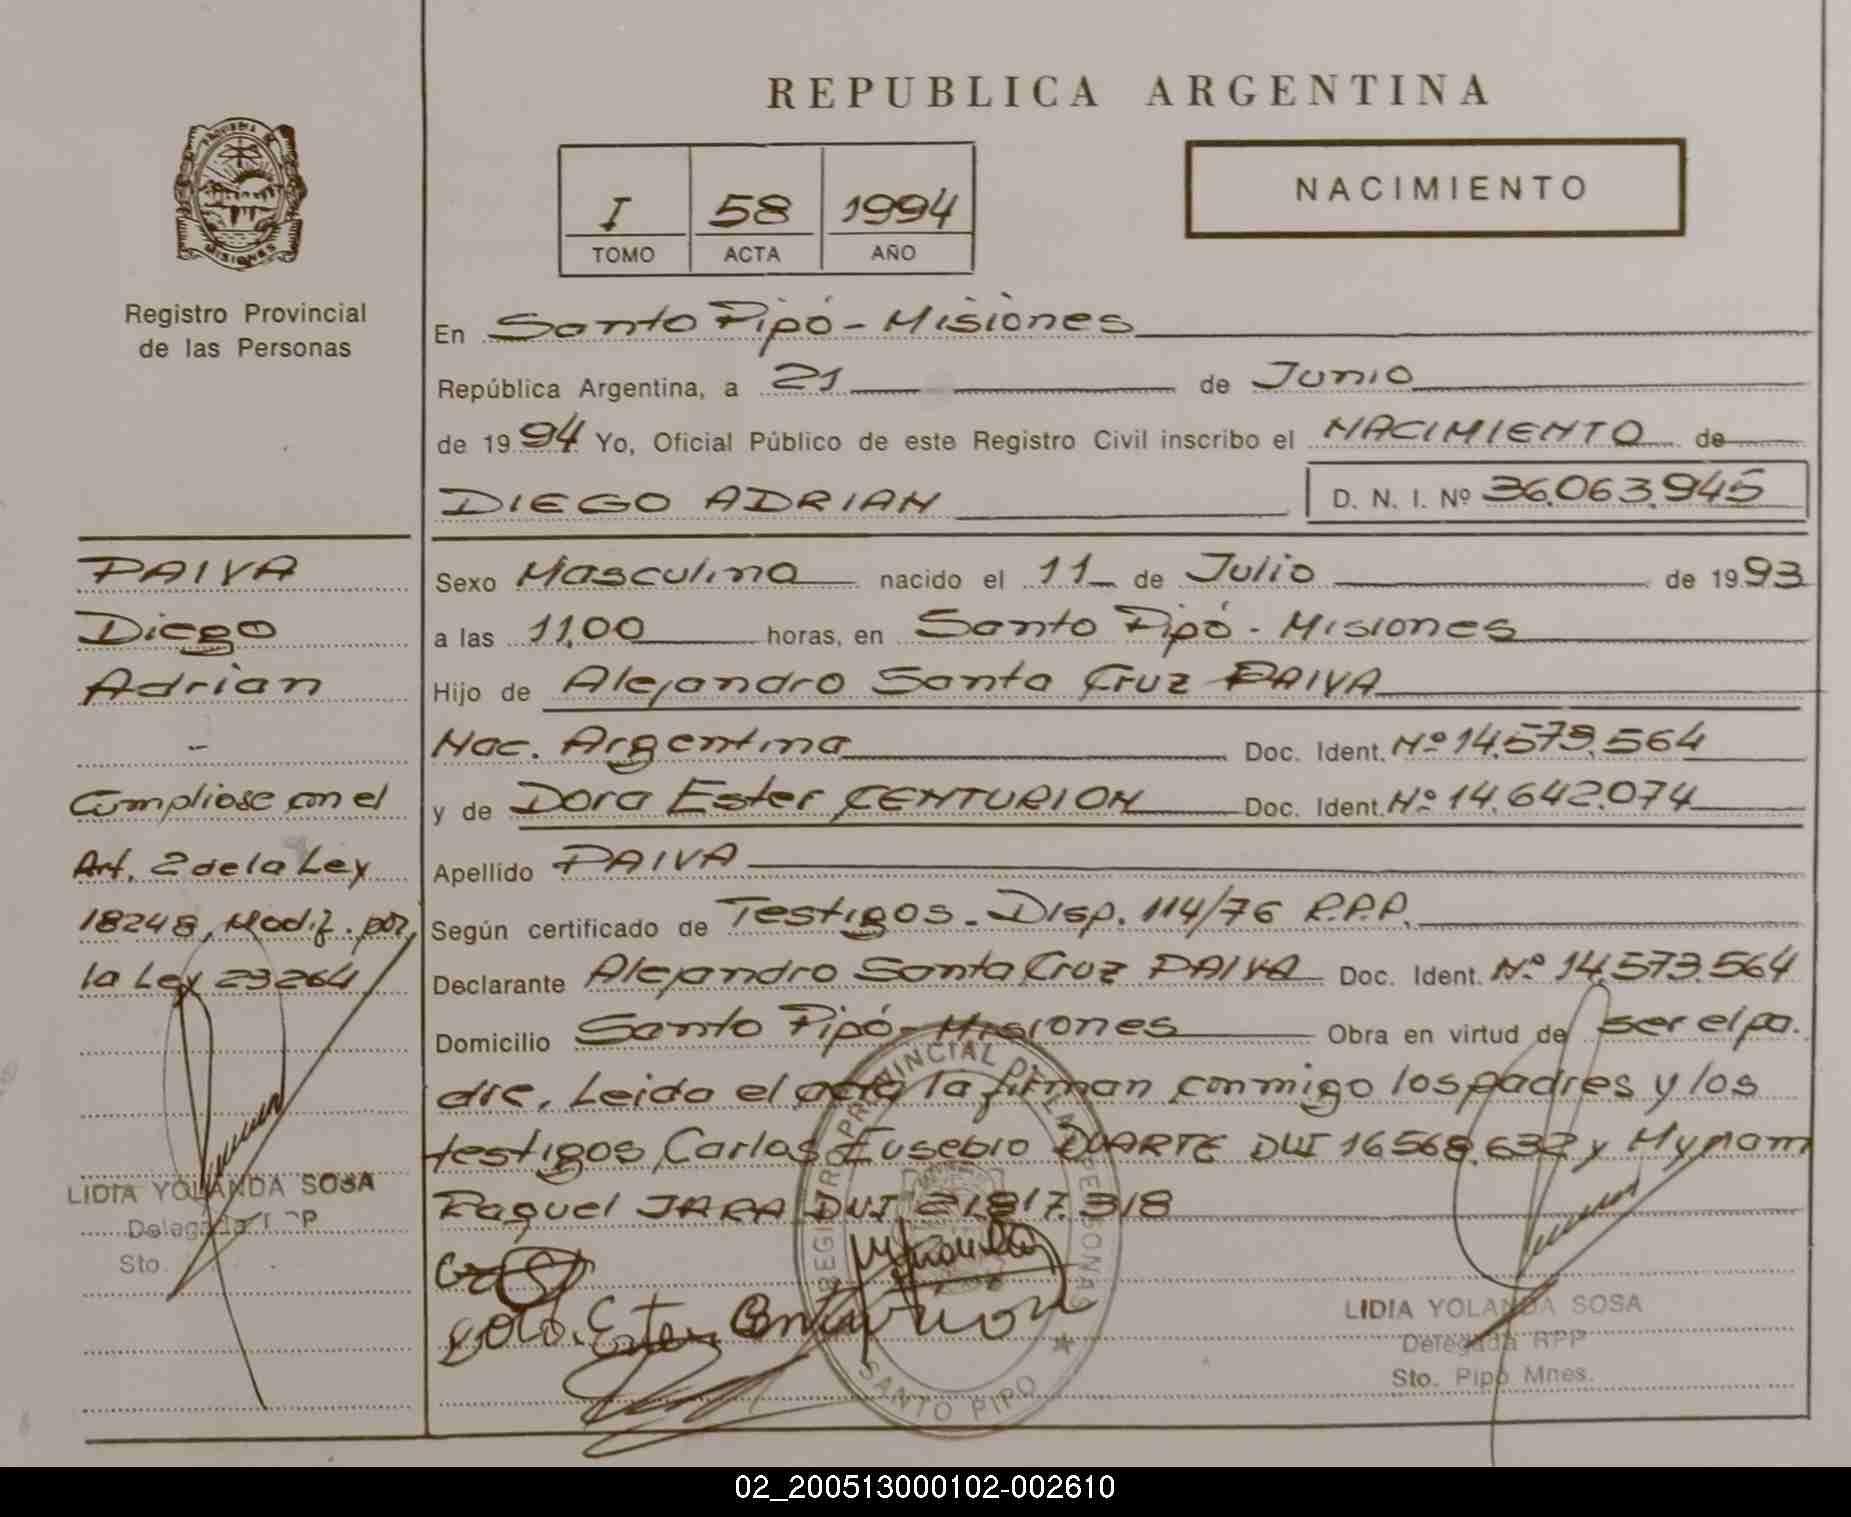 REPUBLICA ARGENTINA
MISIONES
Registro Provincial
de las Personas
I 58 1994
TOMO ACTA AÑO
NACIMIENTO
En Santo Pipó - Misiones
República Argentina, a 21 de Junio
de 1994 Yo, Oficial Público de este Registro Civil inscribo el NACIMIENTO de
DIEGO ADRIAN D. N. I. Nº 36.063.945
PAIVA
Diego
Adrian
-
Cumpliose con el
Art. 2 de la Ley
18248, Modif. por
la Ley 23264
LIDIA YOLANDA SOSA
Delegada
Sto.
Sexo Masculino nacido el 11 de Julio de 1993
a las 11,00 horas, en Santo Pipó - Misiones
Hijo de Alejandro Santa Cruz PAIVA
Nac. Argentina Doc. Ident. Nº 14.573.564
y de Dora Ester CENTURION Doc. Ident. Nº 14.642.074
Apellido PAIVA
Según certificado de Testigos. Disp. 114/76 R.P.P.
Declarante Alejandro Santa Cruz PAIVA Doc. Ident. Nº 14.573.564
Domicilio Santo Pipó - Misiones Obra en virtud de ser el pa.
dre, Leida el acta la firman conmigo los padres y los
testigos Carlos Eusebio DUARTE DNI 16568.632 y Myriam
Raquel JARA DNI 21.817.318
Ester Centurion
REGISTRO PROVINCIAL DE LAS PERSONAS
SANTO PIPO
LIDIA YOLANDA SOSA
Delegada RPP
Sto. Pipó Mnes.
02_200513000102-002610